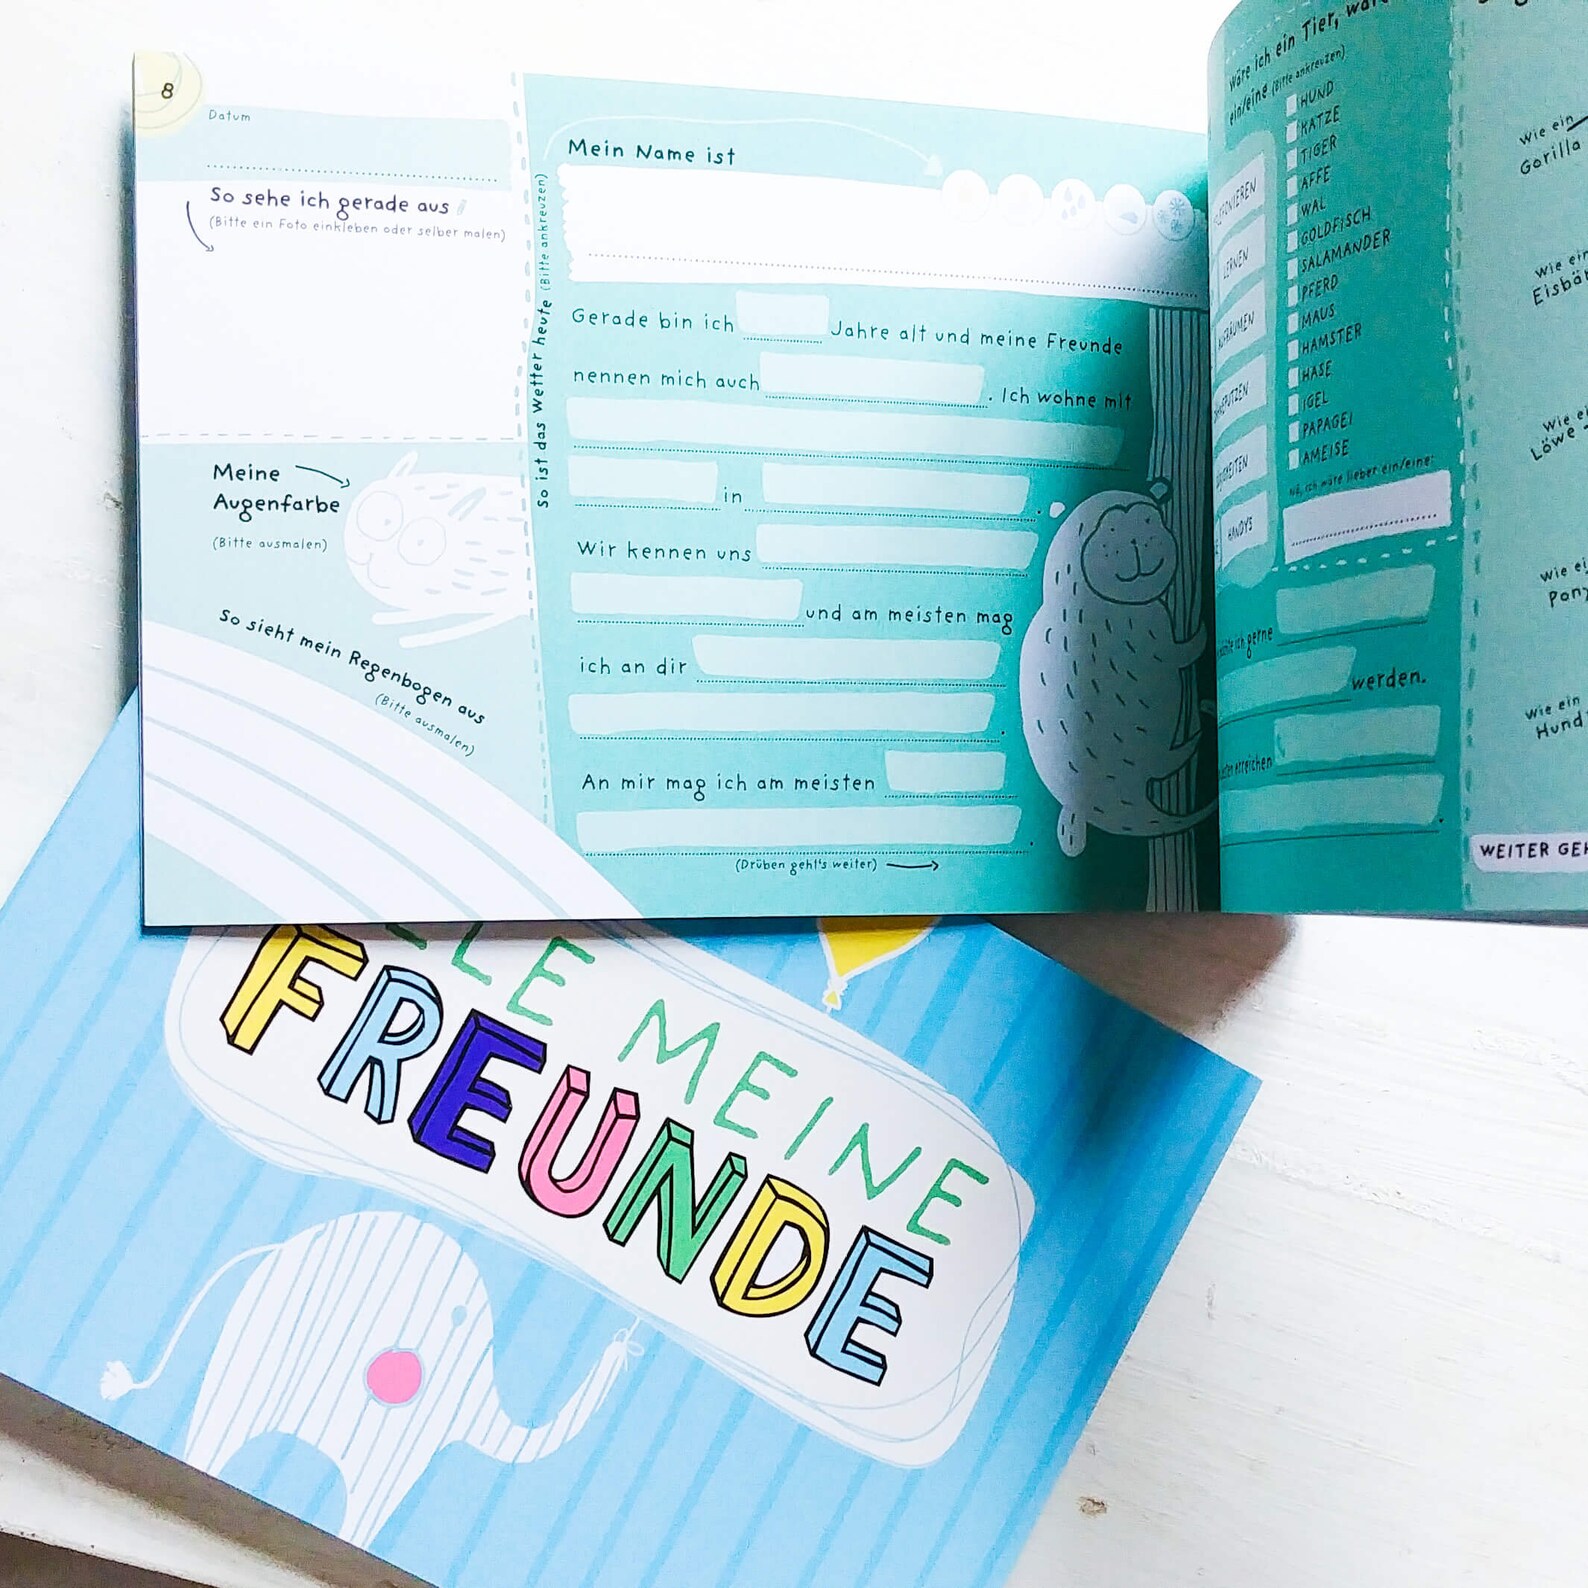 8
Datum
So sehe ich gerade aus
(Bitte ein Foto einkleben oder selber malen)
Meine
Augenfarbe
(Bitte ausmalen)
So sieht mein Regenbogen aus
(Bitte ausmalen)
So ist das Wetter heute (Bitte ankreuzen)
Mein Name ist
Gerade bin ich Jahre alt und meine Freunde
nennen mich auch . Ich wohne mit
in .
Wir kennen uns
und am meisten mag
ich an dir
.
An mir mag ich am meisten
.
(Drüben geht's weiter)
Wäre ich ein Tier,
ein/eine (Bitte ankreuzen)
HUND
KATZE
TIGER
AFFE
WAL
GOLDFISCH
SALAMANDER
PFERD
MAUS
HAMSTER
HASE
IGEL
PAPAGEI
AMEISE
Nö, ich wäre lieber ein/eine:
LERNEN
HANDYS
gerne
werden.
erreichen
.
Wie ein
Gorilla
Wie
Wie
Löwe
Wie
Wie ein
Hund
WEITER
MEINE
FREUNDE